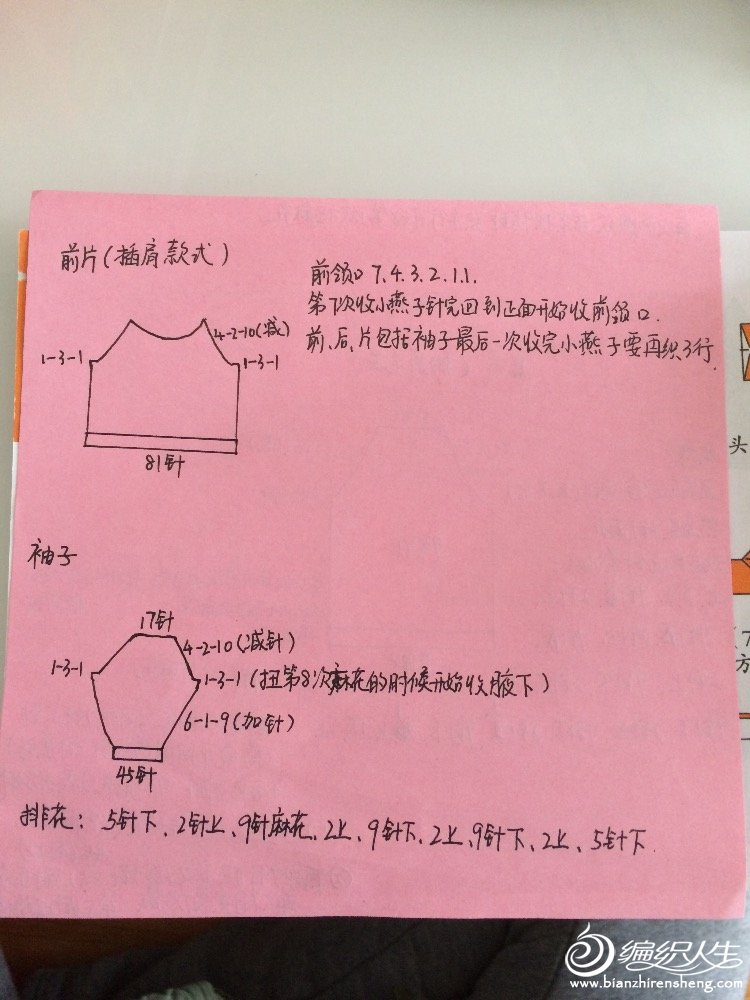 前片(插肩款式)
前领口 7.4.3.2.1.1.
第7次收小燕子针完回到正面开始收前领口.
前、后、片包括袖子最后一次收完小燕子要再织3行.
4-2-10(减)
1-3-1
1-3-1
81针
袖子
17针
4-2-10(减针)
1-3-1
1-3-1(扭第8次麻花的时候开始收腋下)
6-1-9(加针)
45针
排花: 5针下、2针上、9针麻花、2上、9针下、2上、9针下、2上、5针下.
头
(7
方
编织人生
www.bianzhirensheng.com